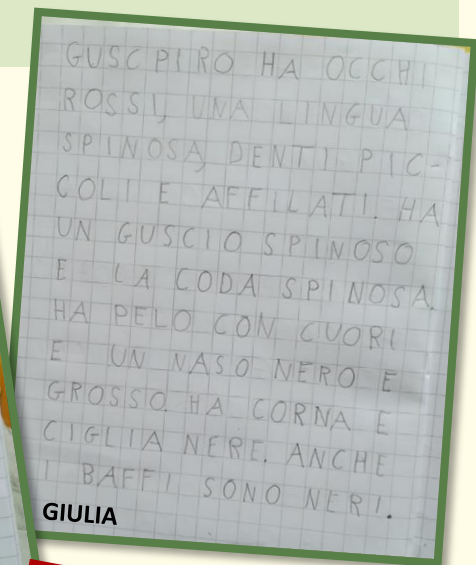 GUSCPIRO HA OCCHI
ROSSI, UNA LINGUA
SPINOSA, DENTI PIC-
COLI E AFFILATI. HA
UN GUSCIO SPINOSO
E LA CODA SPINOSA.
HA PELO CON CUORI
E UN NASO NERO E
GROSSO. HA CORNA E
CIGLIA NERE. ANCHE
I BAFFI SONO NERI.
GIULIA